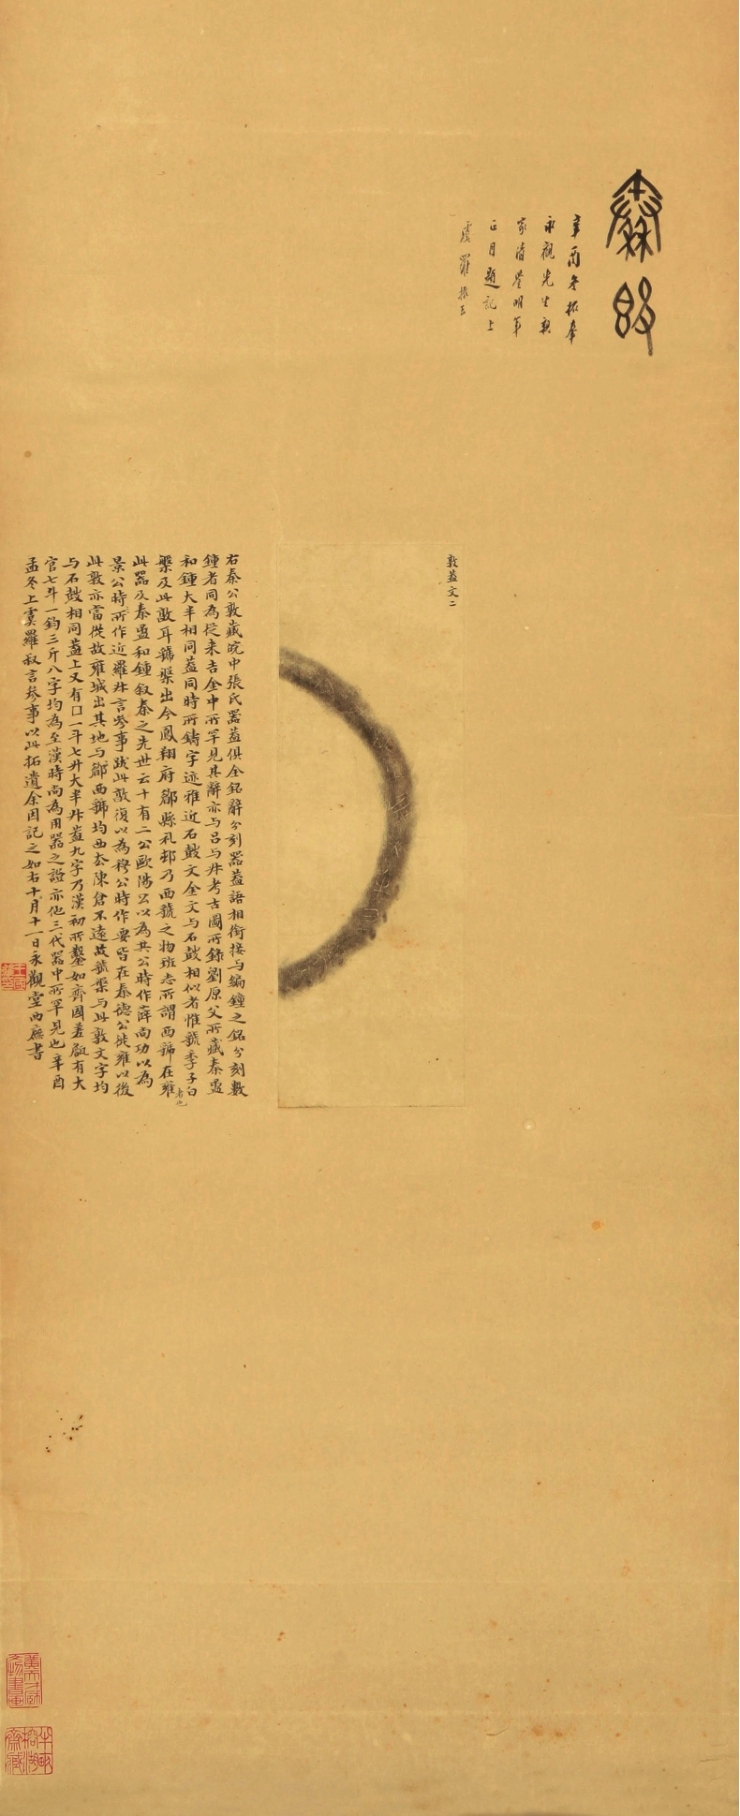 秦敦
辛酉冬拓奉
永觀先生親
家清鑒明年
正月題記上
虞羅振玉
敦蓋文二
右秦公敦藏皖中張氏器蓋俱全銘辭分刻器蓋語相銜接与編鐘之銘分刻數
鐘者同為從来吉金中所罕見其辭亦与吕与叔考古圖所錄劉原父所藏秦盄
和鐘大半相同蓋同時所鑄字迹雅近石鼓文金文与石鼓相似者惟虢季子白
槃及此敦耳虢槃出今鳳翔府郿縣禮邨乃西虢之物班志所謂西虢在雍者也
此器及秦盄和鐘叙秦之先世云十有二公歐陽公以為共公時作薛尚功以為
景公時所作近羅叔言參事跋此敦復以為穆公時作要皆在秦德公徙雍以後
此敦亦當從故雍城出其地与郿西虢均西去陳倉不遠故虢槃与此敦文字均
与石鼓相同蓋上又有囗一斗七升大半升蓋九字乃漢初所鑿如齊國差𦉜有大
官七斗一鈞三斤八字均為至漢時尚為用器之證亦他三代器中所罕見也辛酉
孟冬上虞羅叔言參事以此拓遺余因記之如右十月十一日永觀堂西廡書